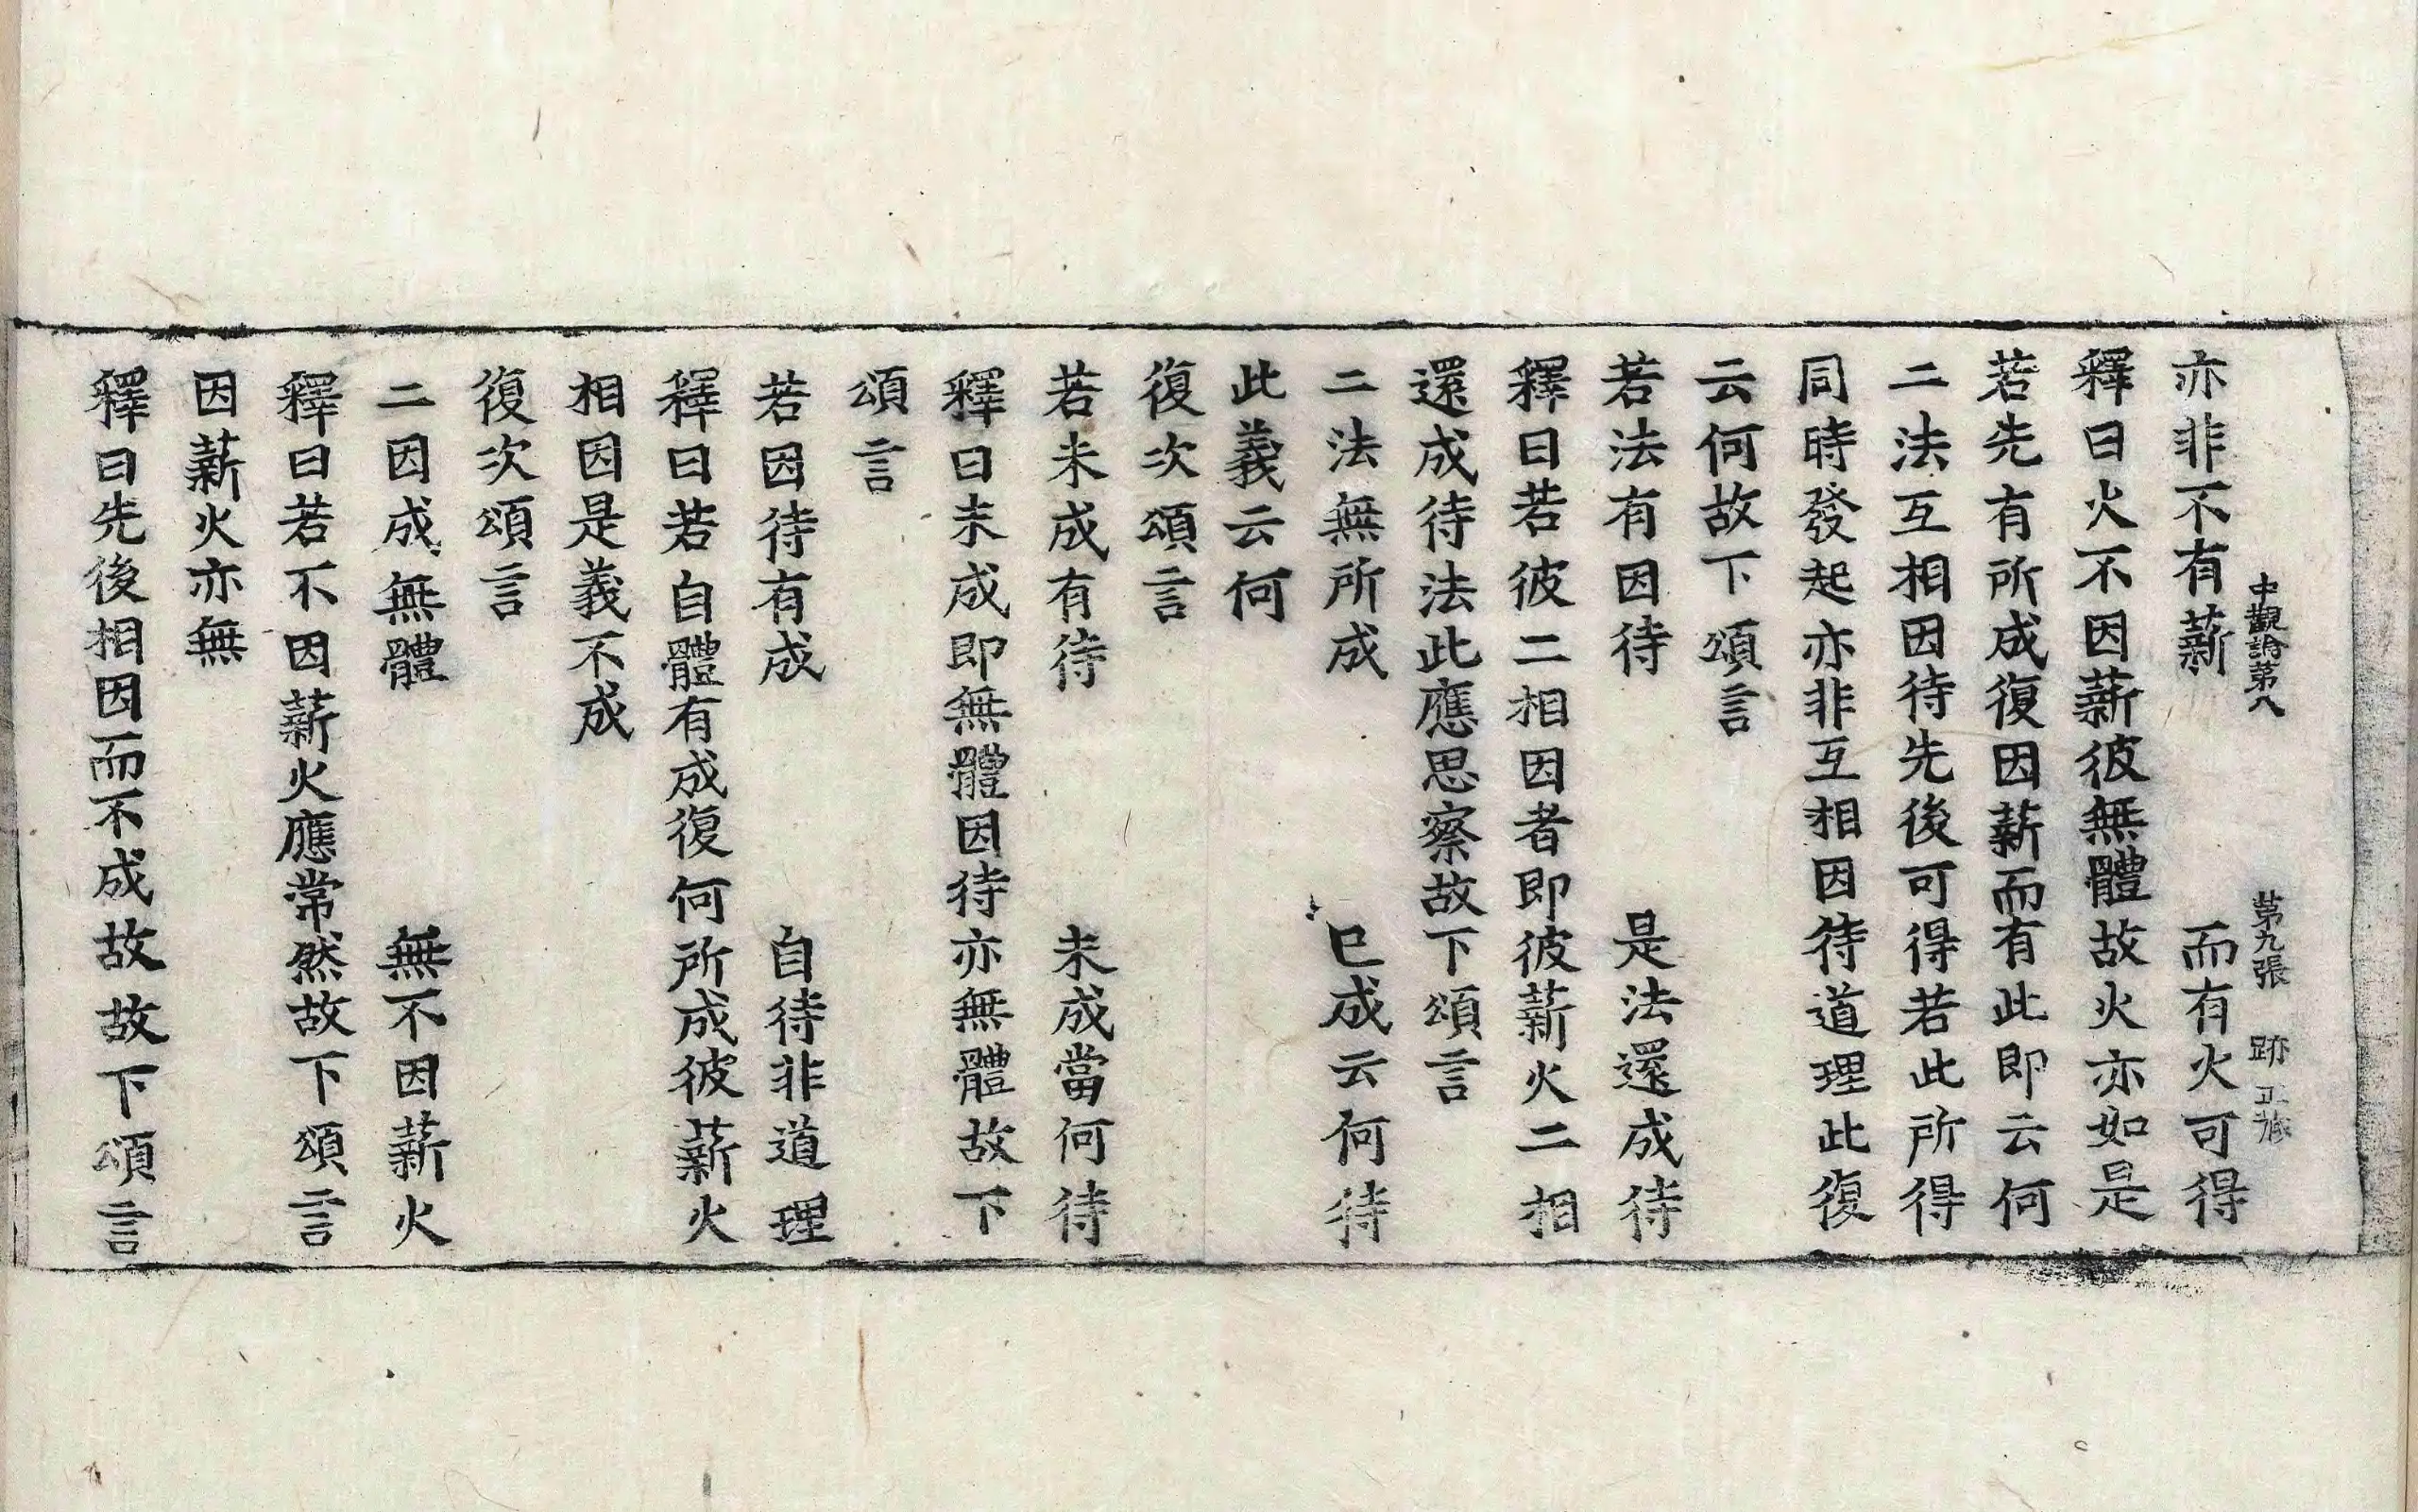 中觀論第八 第九張 跡
亦非不有薪 而有火可得
釋曰火不因薪彼無體故火亦如是
若先有所成復因薪而有此即云何
二法互相因待先後可得若此所得
同時發起亦非互相因待道理此復
云何故下頌言
若法有因待 是法還成待
釋曰若彼二相因者即彼薪火二相
還成待法此應思察故下頌言
二法無所成 已成云何待
此義云何
復次頌言
若未成有待 未成當何待
釋曰未成即無體因待亦無體故下
頌言
若因待有成 自待非道理
釋曰若自體有成復何所成彼薪火
相因是義不成
復次頌言
二因成無體 無不因薪火
釋曰若不因薪火應常然故下頌言
因薪火亦無
釋曰先後相因而不成故故下頌言